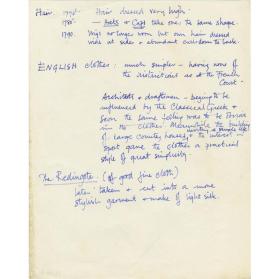 Hair. 1775 - Hair dressed very high.
1785 - — Hats & Caps take on the same shape
1790. Wigs no longer worn but own hair dressed
wide at sides & abundant curls down the back.
ENGLISH clothes: much simpler - having none of
the restrictions as at the French
Court -
Architects & draftsmen - begin to be
influenced by the Classical Greek &
soon the same feeling was to be
in the clothes. Meanwhile the building
of large country houses, & the interest
sport gave the clothes a practical
style of great simplicity.
The Redingote (of good fine cloth)
later taken & cut into a more
stylish garment & made of light silk.